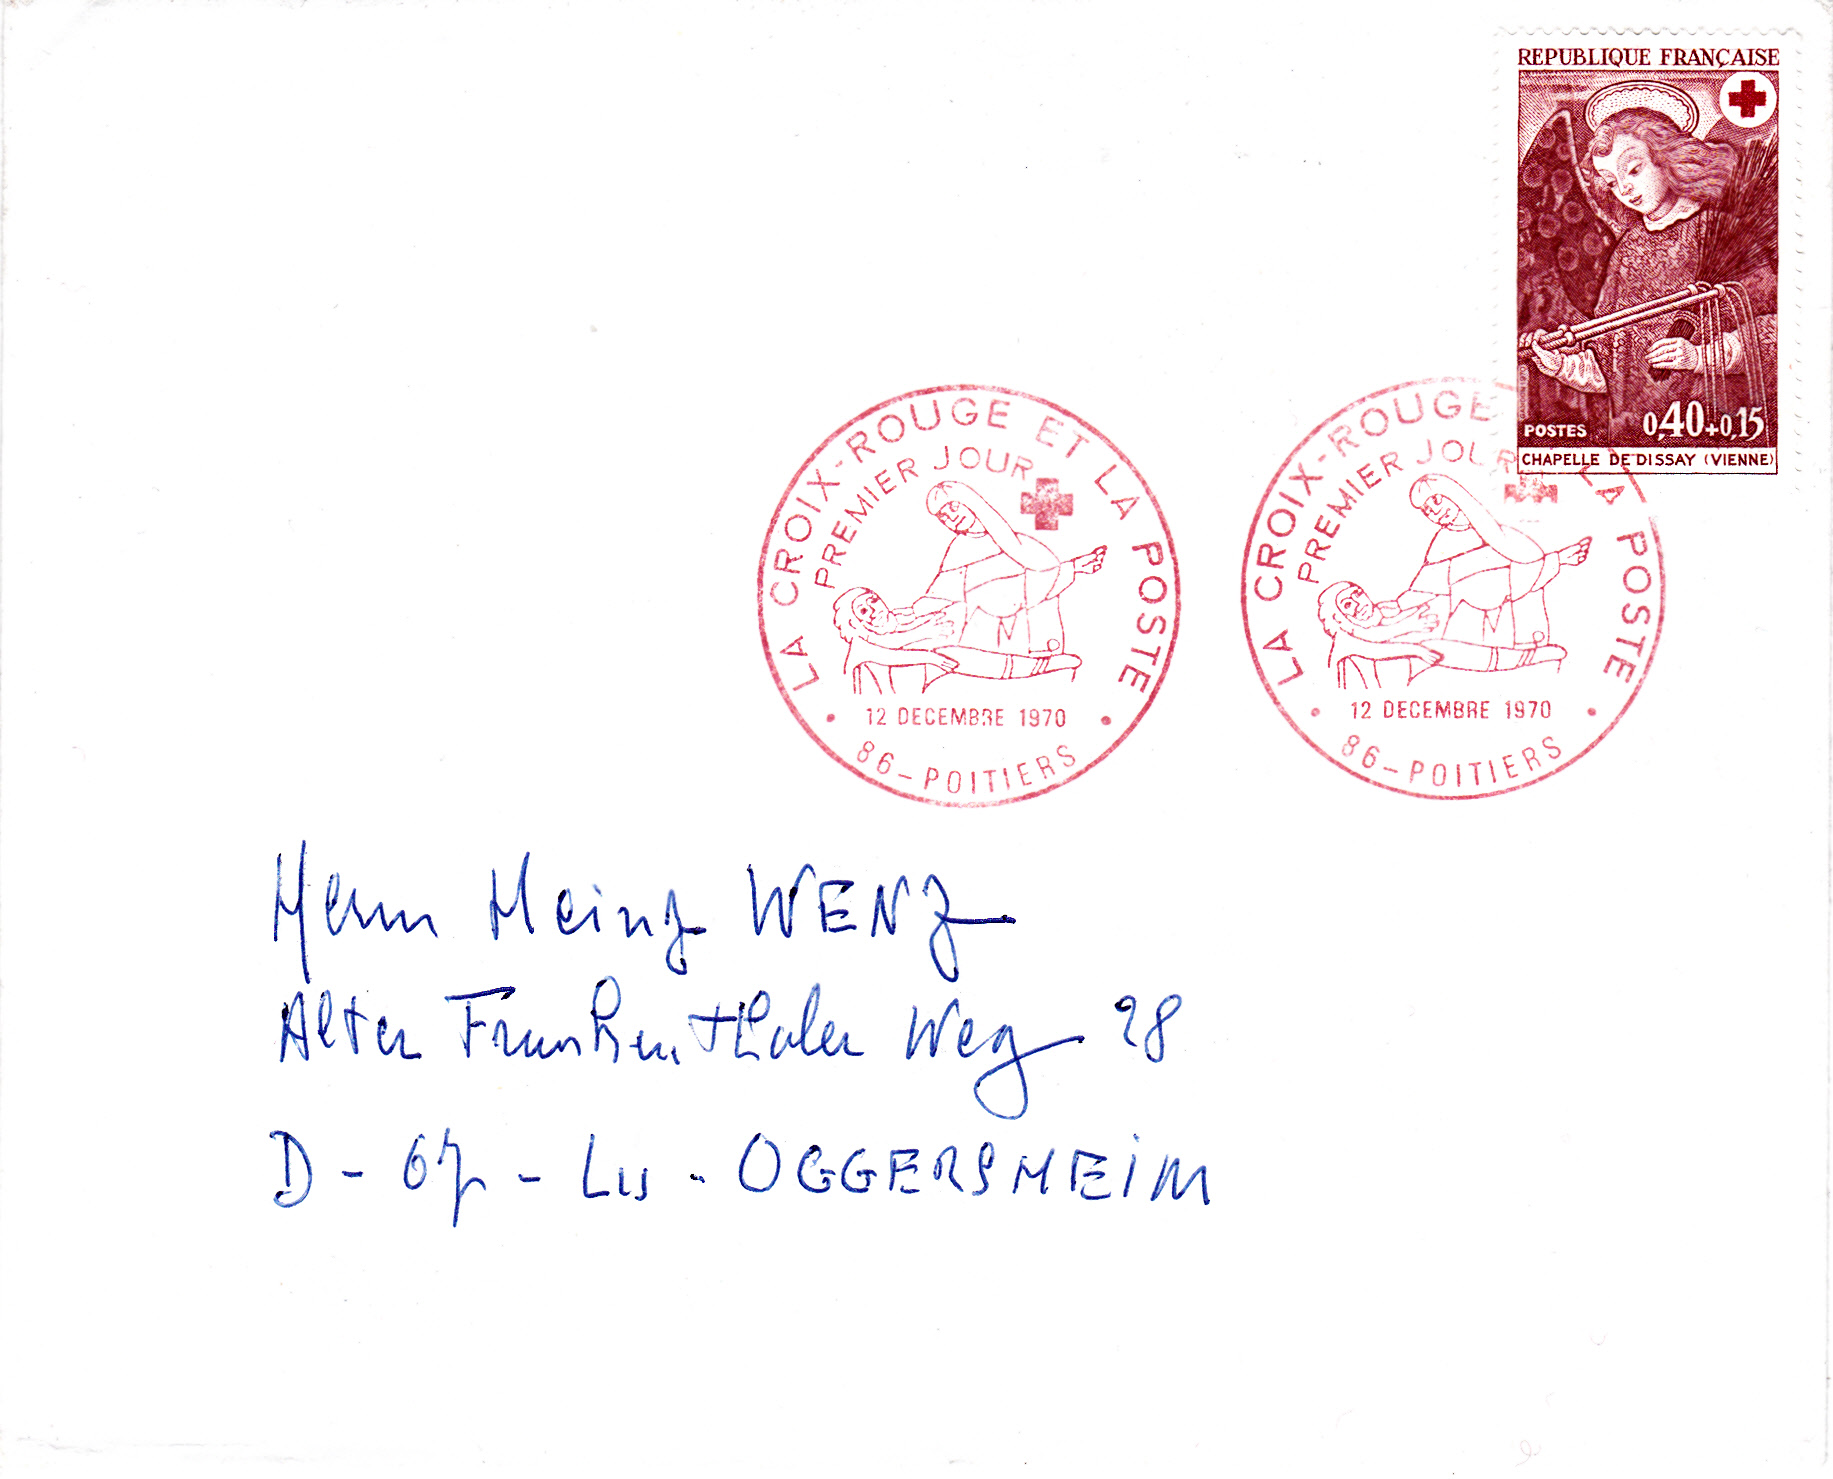 REPUBLIQUE FRANÇAISE
POSTES
0,40+0,15
CHAPELLE DE DISSAY (VIENNE)
LA CROIX-ROUGE ET LA POSTE
PREMIER JOUR
12 DECEMBRE 1970
86-POITIERS
LA CROIX-ROUGE LA POSTE
PREMIER JOUR
12 DECEMBRE 1970
86-POITIERS
Herrn Heinz WENZ
Alter Frankenthaler Weg 28
D - 67 - Lu - OGGERSHEIM